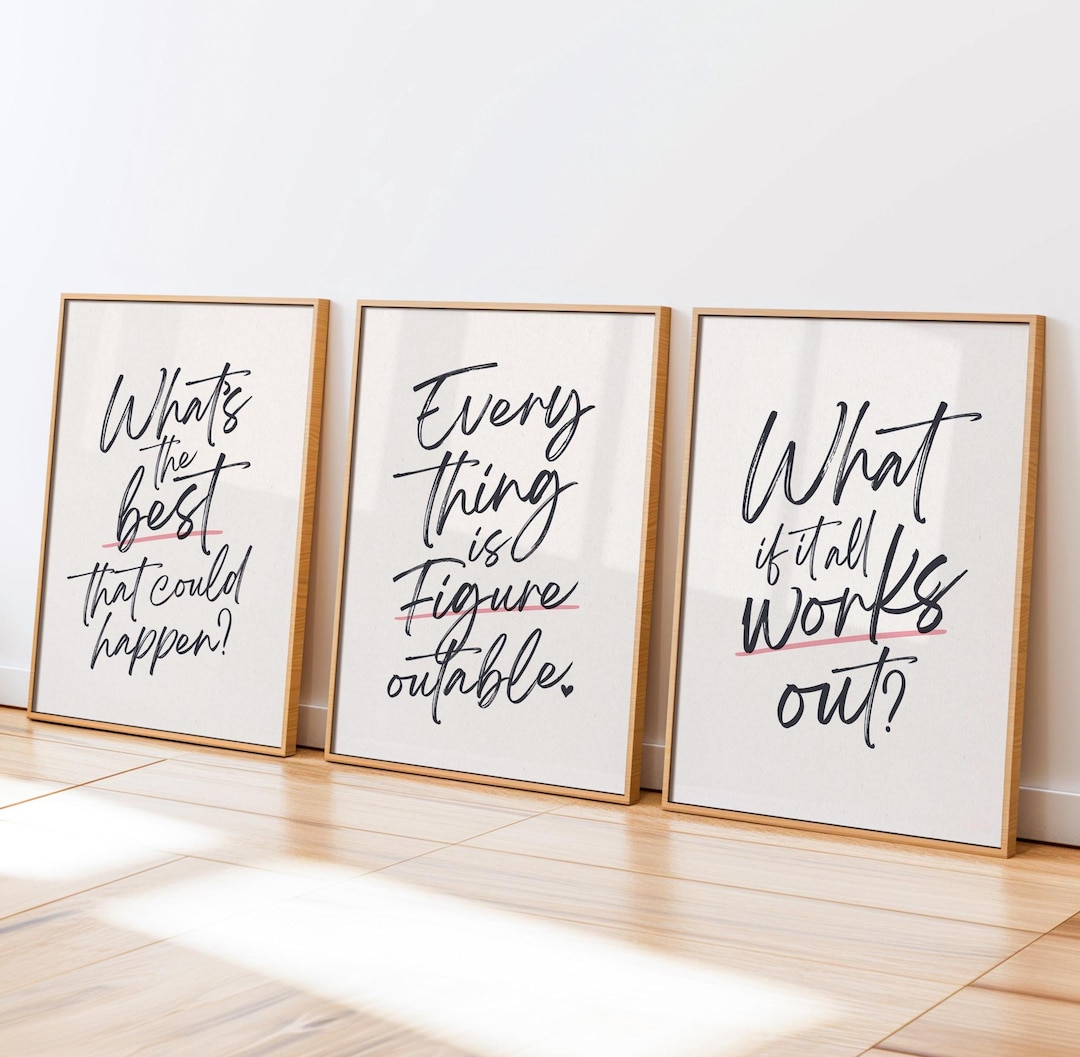 What's
the
best
that could
happen?
Every
thing
is
Figure
outable.
What
if it all
works
out?